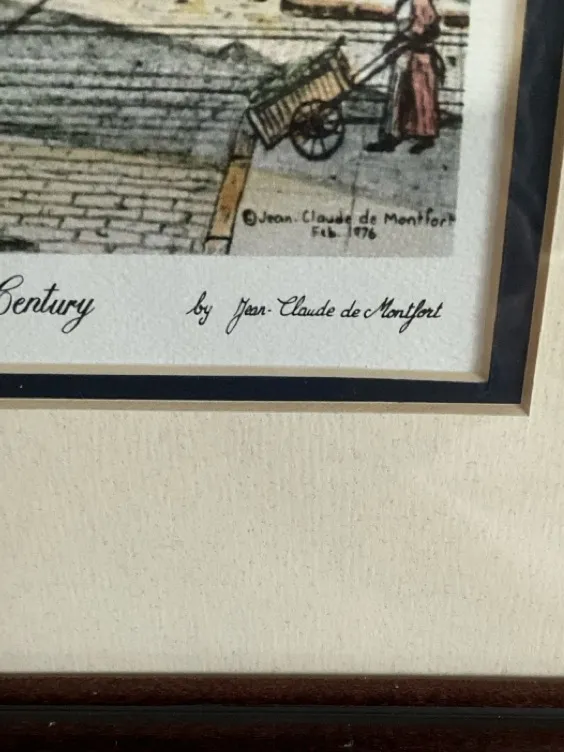 ©Jean-Claude de Montfort
Feb. 1976
Century by Jean-Claude de Montfort